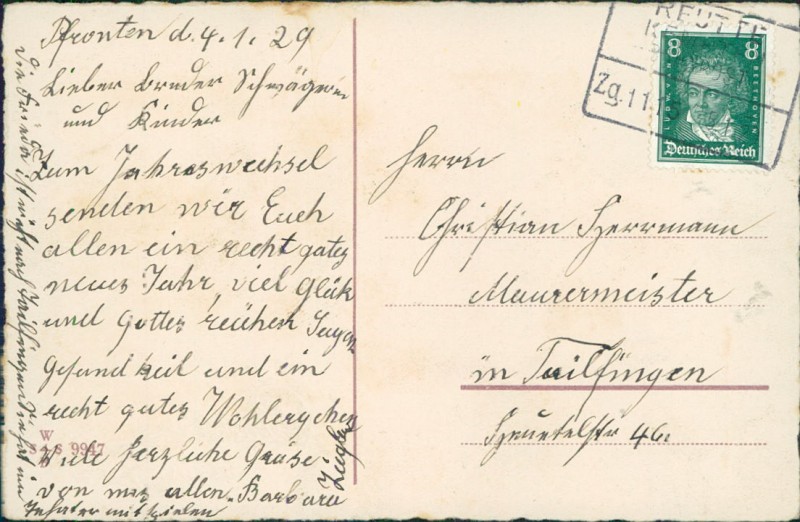 Pfronten d. 4.1.29
Lieber Bruder Schwägerin
und Kinder
Zum Jahreswechsel
senden wir Euch
allen ein recht gutes
neues Jahr, viel Glück
und Gottes reichen Segen
Gesundheit und ein
recht gutes Wohlergehen
Viele herzliche Grüse
von uns allen. Barbara
Ziegler
die Frieda ist nicht nach Tailfingen sie hat im
Theater mit
W
S & S 9947
REUTTE
Zg. 11
8 8
LUDWIG VAN BEETHOVEN
Deutsches Reich
Herrn
Christian Herrmann
Maurermeister
in Tailfingen
46.